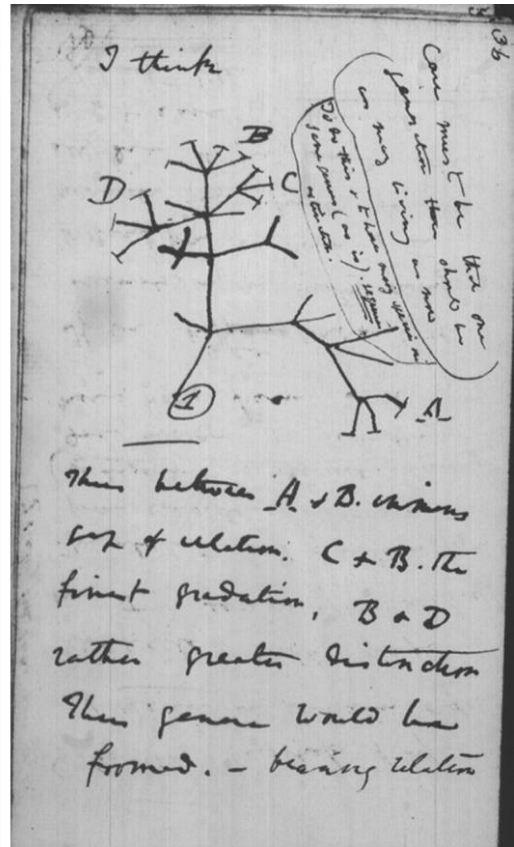 36
I think
Case must be that one
generation then should be
as many living as now
To do this & to have many species in
same genus (as is), requires
extinction.
B
D
C
A
1
Thus between A & B. immens
gap of relation. C & B. The
finest gradation, B & D
rather greater distinction
Thus genera would be
formed. — bearing relation